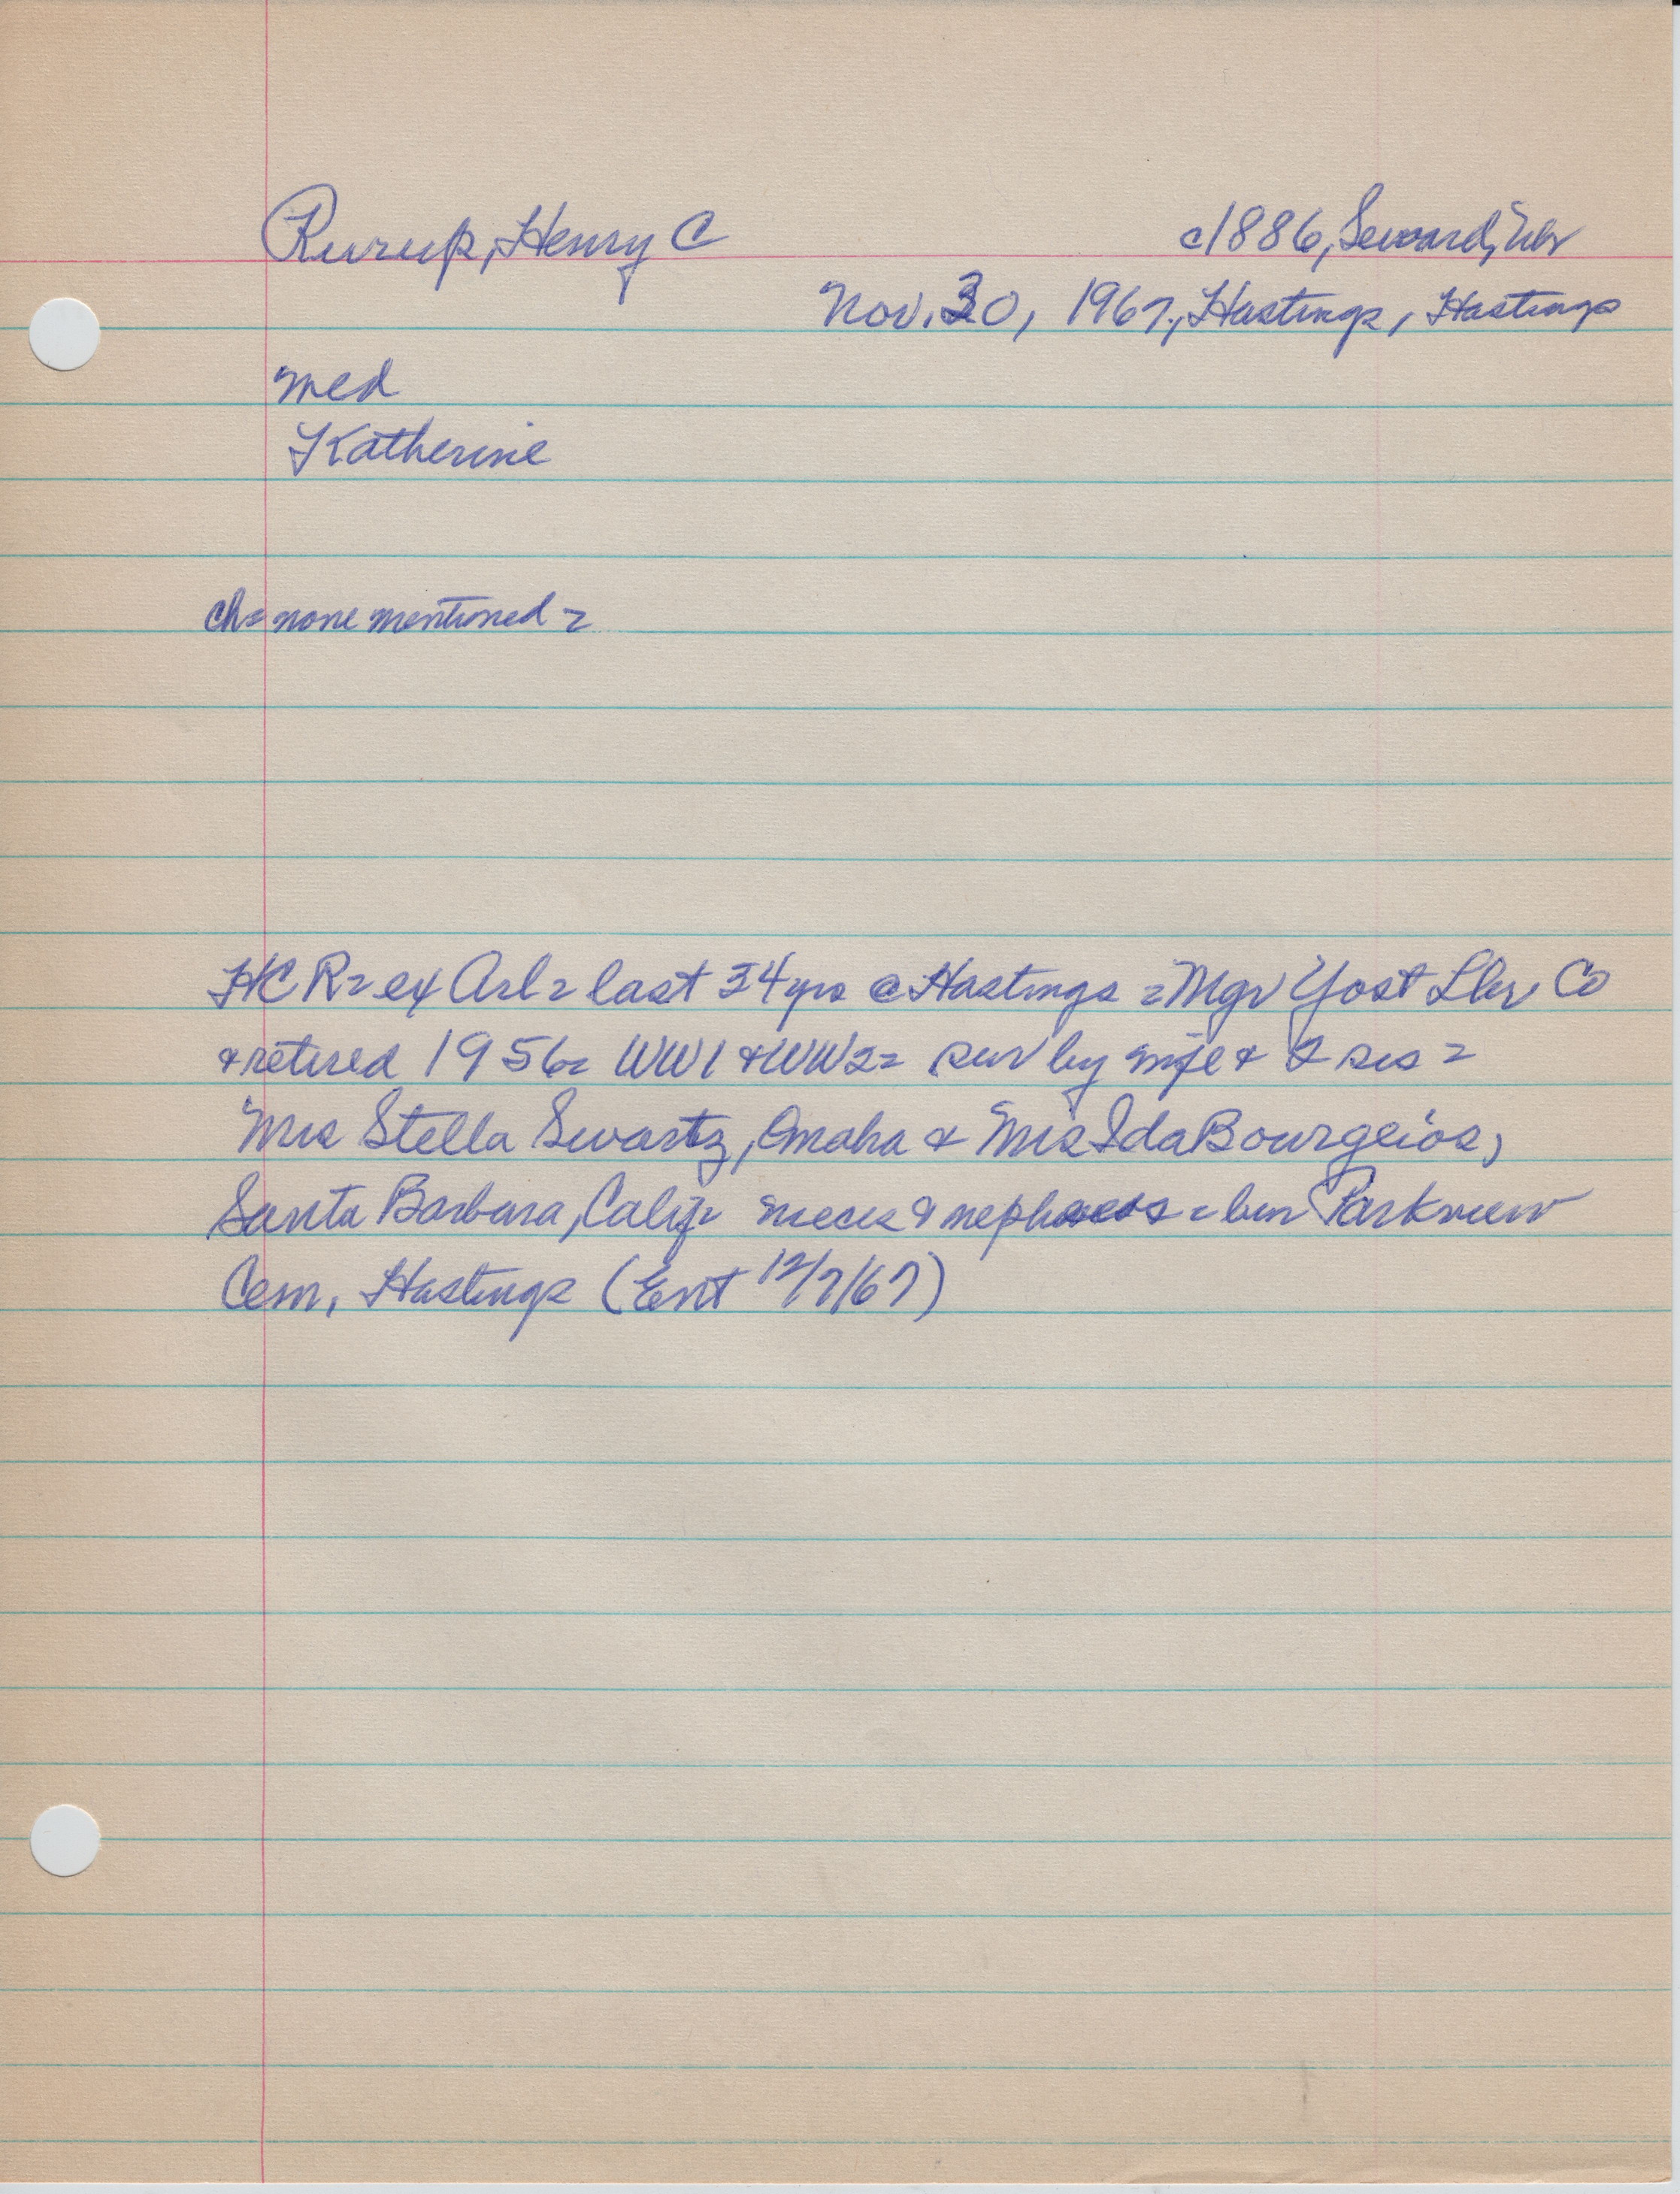 Rurup, Henry C
c1886, Seward, Nbr
Nov. 30, 1967, Hastings, Hastings
med
Katherine
ch= none mentioned =
HC R= ex Arl= last 34 yrs @ Hastings = Mgr Yost Lbr Co
& retired 1956= WW1 & WW2= sur by wife & 2 sis =
Mrs Stella Swartz, Omaha & Mrs Ida Bourgeios,
Santa Barbara, Calif= nieces & nephews = bur Parkview
Cem, Hastings (Ent 12/7/67)